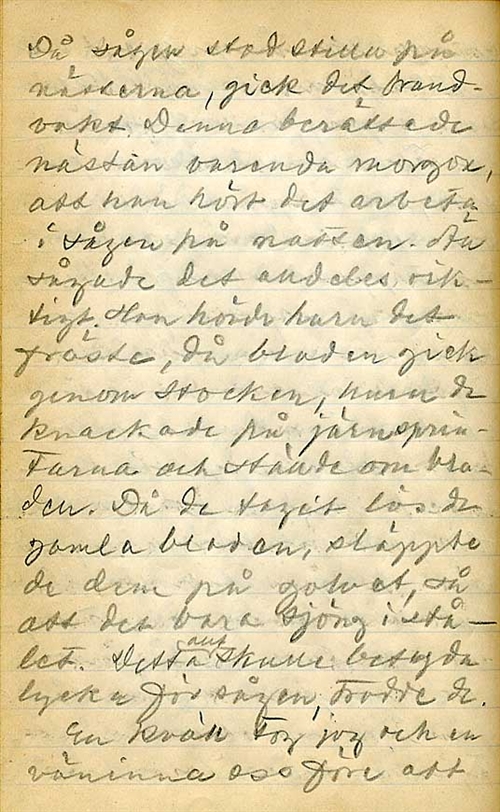 Då sågen stod stilla på
nätterna, gick det brand-
vakt. Denna berättade
nästan varenda morgon,
att han hört det arbeta
i sågen på natten. Än
sågade det alldeles rik-
tigt. Han hörde huru det
fräste, då bladen gick
genom stocken, huru de
knackade på järnsprin-
tarna och stände om bla-
den. Då de tagit lös de
gamla bladen, släppte
de dem på golvet, så
att det bara sjöng i stå-
let. Detta allt skulle betyda
lycka för sågen, trodde de.
En kväll tog jag och en
väninna oss före att